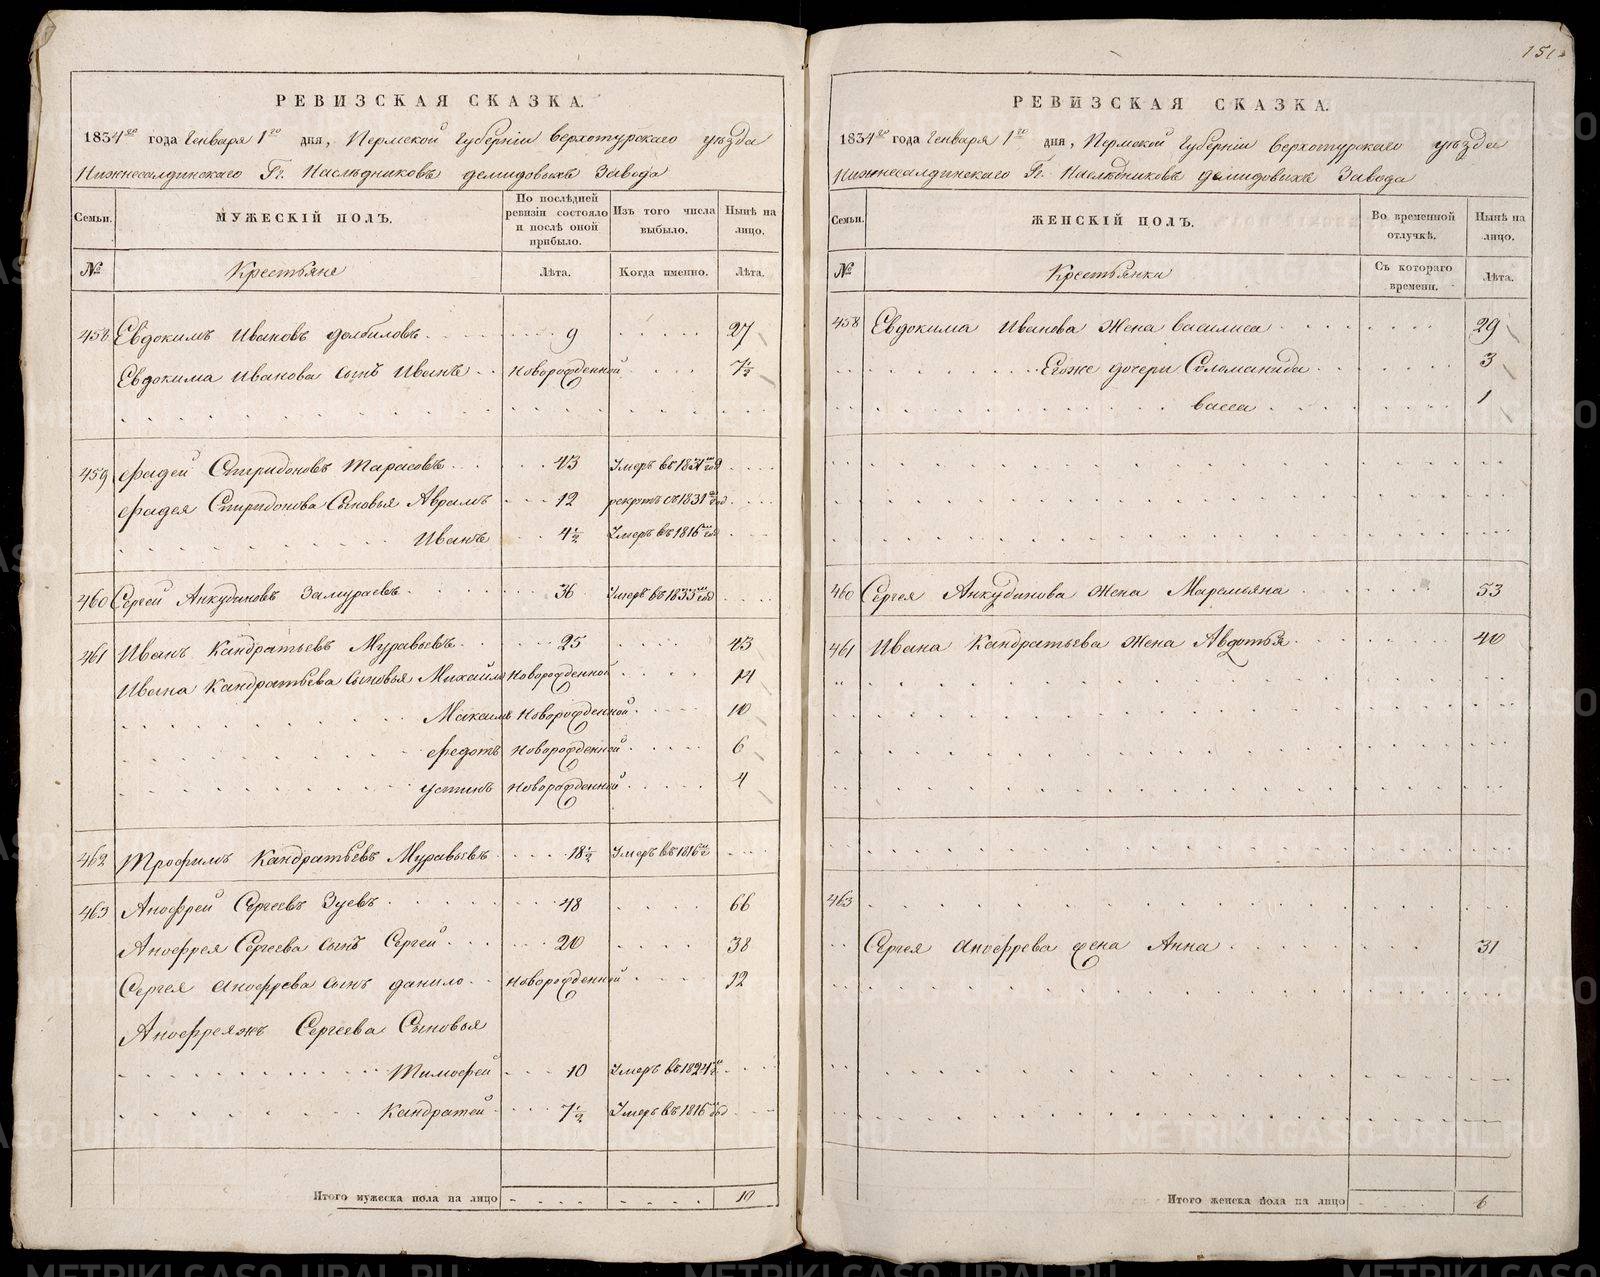 РЕВИЗСКАЯ СКАЗКА.
1834го года Генваря 1го дня, Пермской Губерніи Верхотурскаго уѣзда
Нижнесалдинскаго Гг. Наслѣдниковъ демидовыхъ Завода
Семьи. МУЖЕСКІЙ ПОЛЪ. По послѣдней ревизіи состояло и послѣ оной прибыло. Изъ того числа выбыло. Нынѣ на лицо.
№ Крестьяне Лѣта. Когда именно. Лѣта.
458 Евдокимъ Ивановъ 9 27
Евдокима Иванова сынъ Иванъ Новорожденной 7½
459 Фадей Спиридоновъ Тарасовъ 43 Умеръ въ
Фадея Спиридонова Сыновья Аврамъ 12 рекрутъ съ 1831 год
Иванъ 4½ Умеръ въ 1816 год
460 Сергей Анкудиновъ Замураевъ 36 Умеръ въ 1833 год
461 Иванъ Кандратьевъ Муравьевъ 25 43
Ивана Кандратьева Сыновья Михайло Новорожденной 14
Максимъ Новорожденной 10
Федотъ Новорожденной 6
устинъ Новорожденной 4
462 Трофимъ Кандратьевъ Муравьевъ 18½ Умеръ въ 1816
463 Анофрей Сергеевъ Зуевъ 48 66
Анофрея Сергеева сынъ Сергей 20 38
Сергея анофрева сынъ данило Новорожденной 12
Анофреяжъ Сергеева Сыновья
Тимофей 10 Умеръ въ 1824
Кандратей 7½ Умеръ въ 1816 год
Итого мужеска пола на лицо 10
151
РЕВИЗСКАЯ СКАЗКА.
1834го года Генваря 1го дня, Пермской Губерніи Верхотурскаго уѣзда
Нижнесалдинскаго Гг. Наслѣдниковъ демидовыхъ Завода
Семьи. ЖЕНСКІЙ ПОЛЪ. Во временной отлучкѣ. Нынѣ на лицо.
№ Крестьянки Съ котораго времени. Лѣта.
458 Евдокима Иванова жена василиса 29
Егоже дочери Соломанида 3
васса 1
460 Сергея Анкудинова жена Маремьяна 53
461 Ивана Кандратьева жена Авдотья 40
463
Сергея анофрева жена Анна 31
Итого женска пола на лицо 6
METRIKI.GASO-URAL.RU